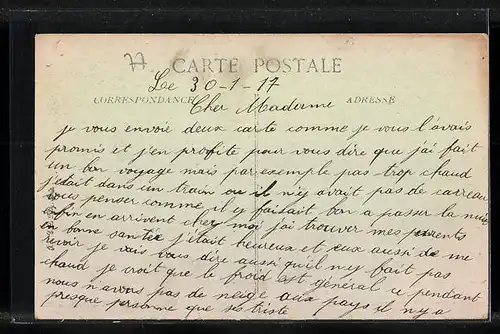 77
CARTE POSTALE
Le 30-1-17
CORRESPONDANCE
ADRESSE
Cher Madame
je vous envoie deux carte comme je vous l'avais
promis et j'en profite pour vous dire que j'ai fait
un bon voyage mais par exemple pas trop chaud
j'était dans un train ou il n'y avait pas de carreau
vous penser comme il y faisait bon a passer la nuit
enfin en arrivent chez moi j'ai trouver mes parents
en bonne santée j'était heureux et eux aussi de me
revoir je vais vous dire aussi qu'il n'y fait pas
chaud je croit que le froid est général cependant
nous n'avons pas de neige aux pays il n'y a
presque personne que s'es triste